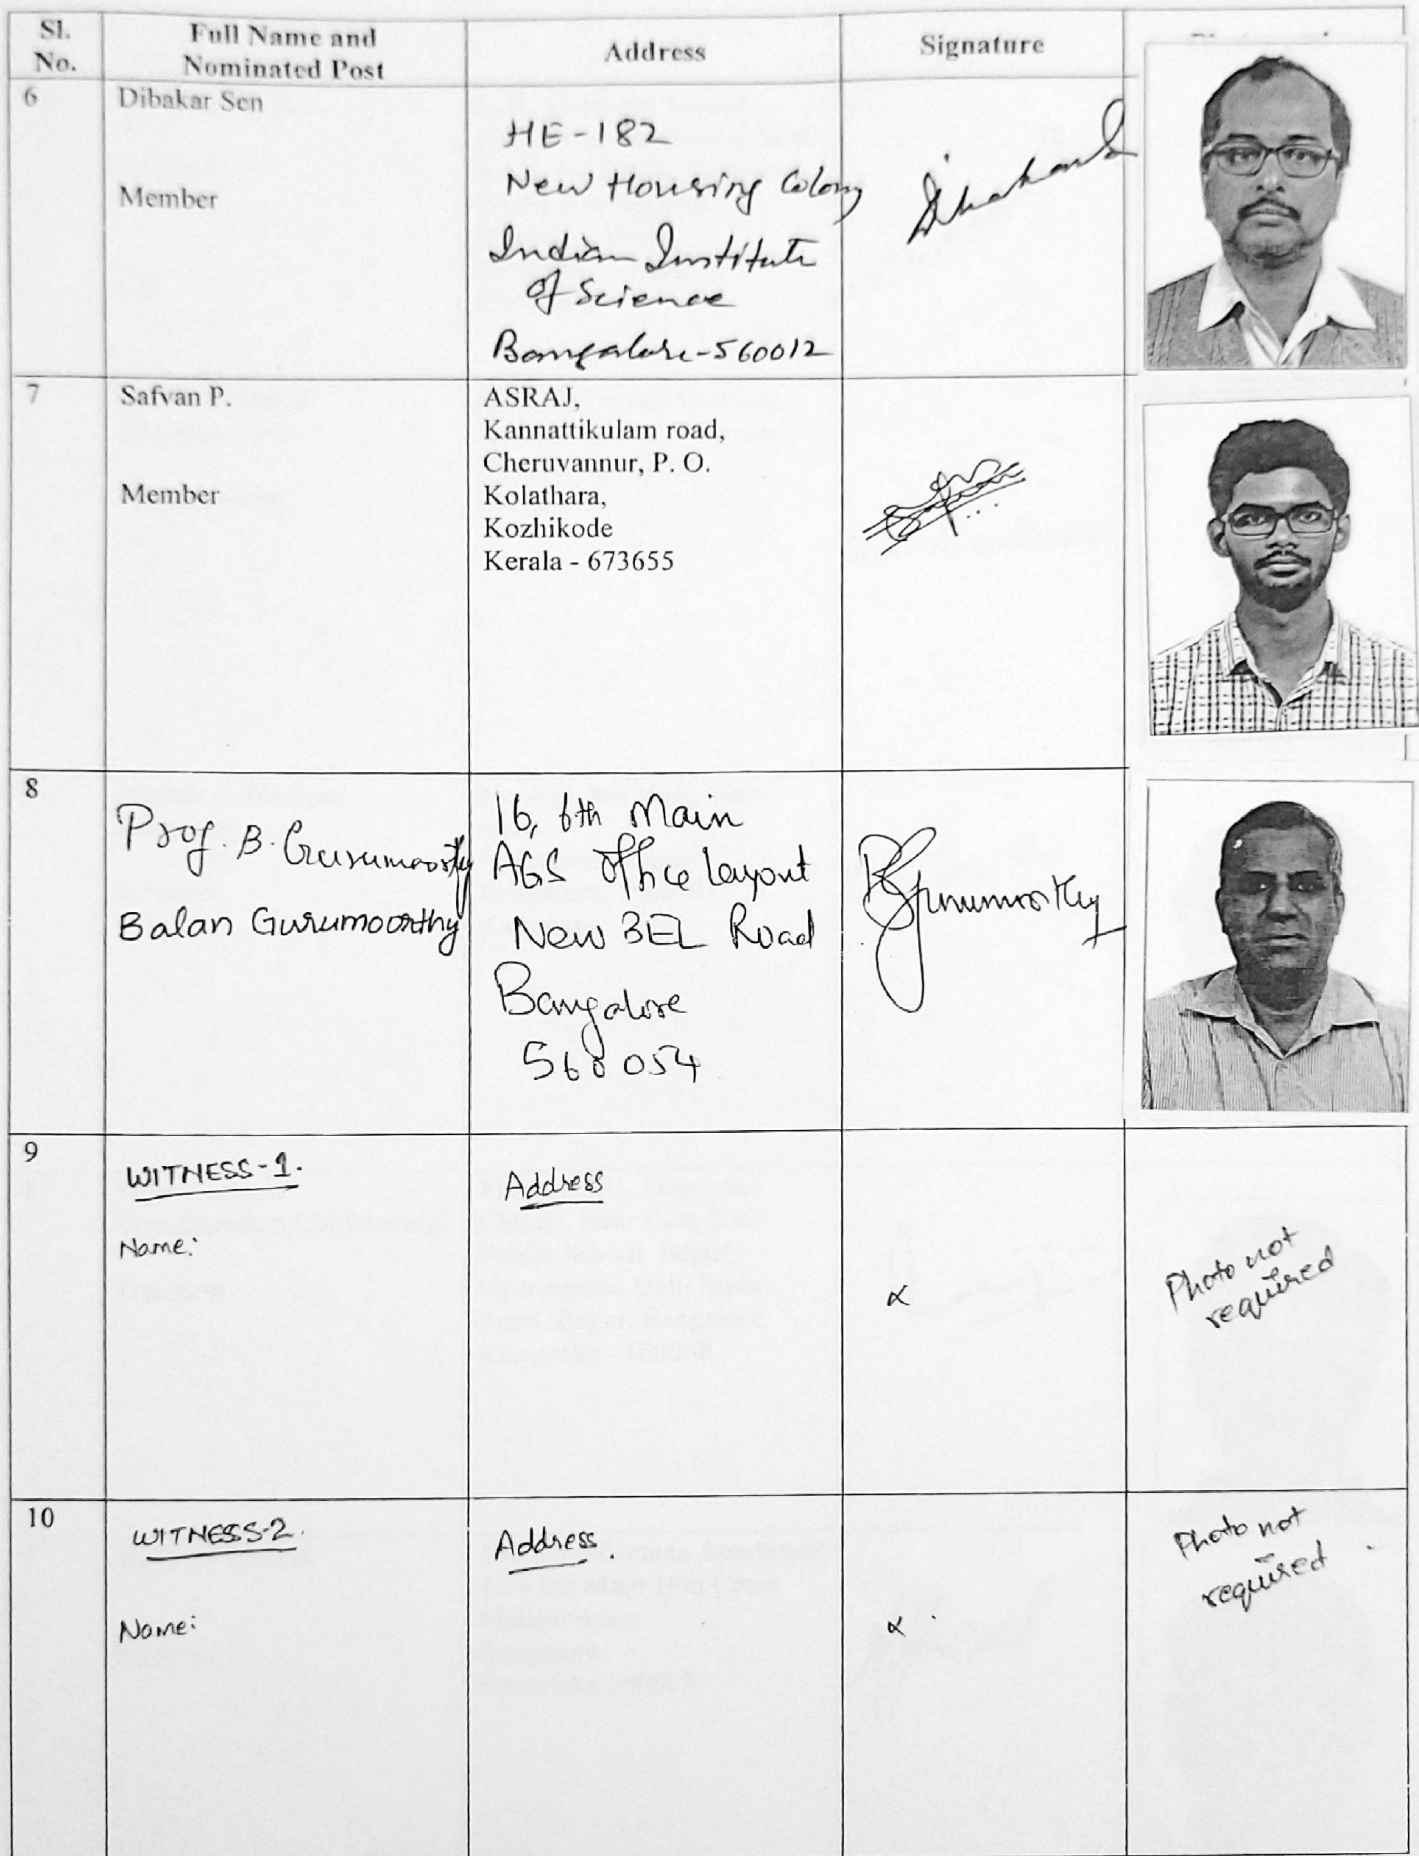 Sl. No.
Full Name and Nominated Post
Address
Signature
6
Dibakar Sen
Member
HE-182
New Housing Colony
Indian Institute
of Science
Bangalore-560012
7
Safvan P.
Member
ASRAJ,
Kannattikulam road,
Cheruvannur, P. O.
Kolathara,
Kozhikode
Kerala - 673655
8
Prof. B. Gurumoorthy
Balan Gurumoorthy
16, 6th Main
AGS Office Layout
New BEL Road
Bangalore
560054
BGurumoorthy
9
WITNESS-1.
Name:
Address
Photo not
required
10
WITNESS-2.
Name:
Address.
Photo not
required